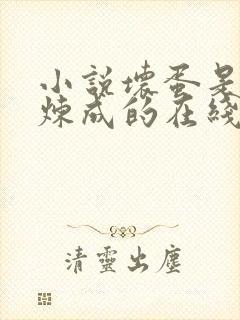 小說壞蛋是
煉成的在綫
清靈出塵